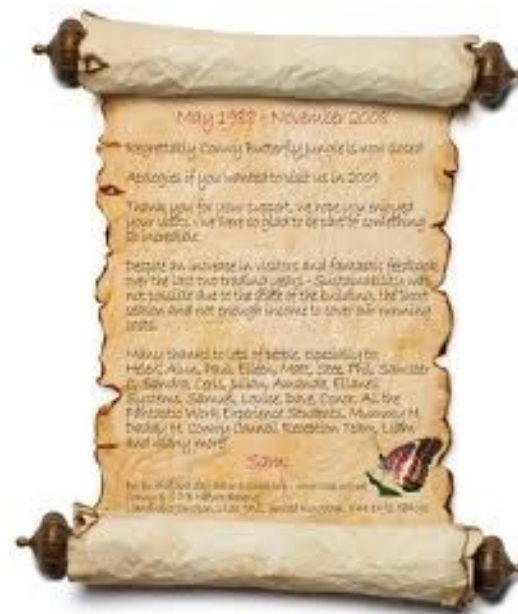 May 1988 - November 2008
Regrettably Conwy Butterfly Jungle is now closed
Apologies if you wanted to visit us in 2009
Thank you for your support, we hope you enjoyed
your visits - we were so glad to be part of something
so incredible.
Despite an increase in visitors and fantastic feedback
over the last two trading years - Sustainability was
not possible due to the state of the building, the short
season and not enough income to cover our running
costs.
Many thanks to lots of people, especially to:
Helen, Alun, Paul, Eileen, Matt, Phil,
Sandra, Ceris, Julian, Amanda,
Systems, Samuel, Louise, Dave, Conor, All the
Fantastic Work Experience Students, Mummy H,
Daddy H, Conwy Council Reception Team, Liam
and Many more!
Sam
Conwy Nature Reserve
Llandudno Junction, United Kingdom